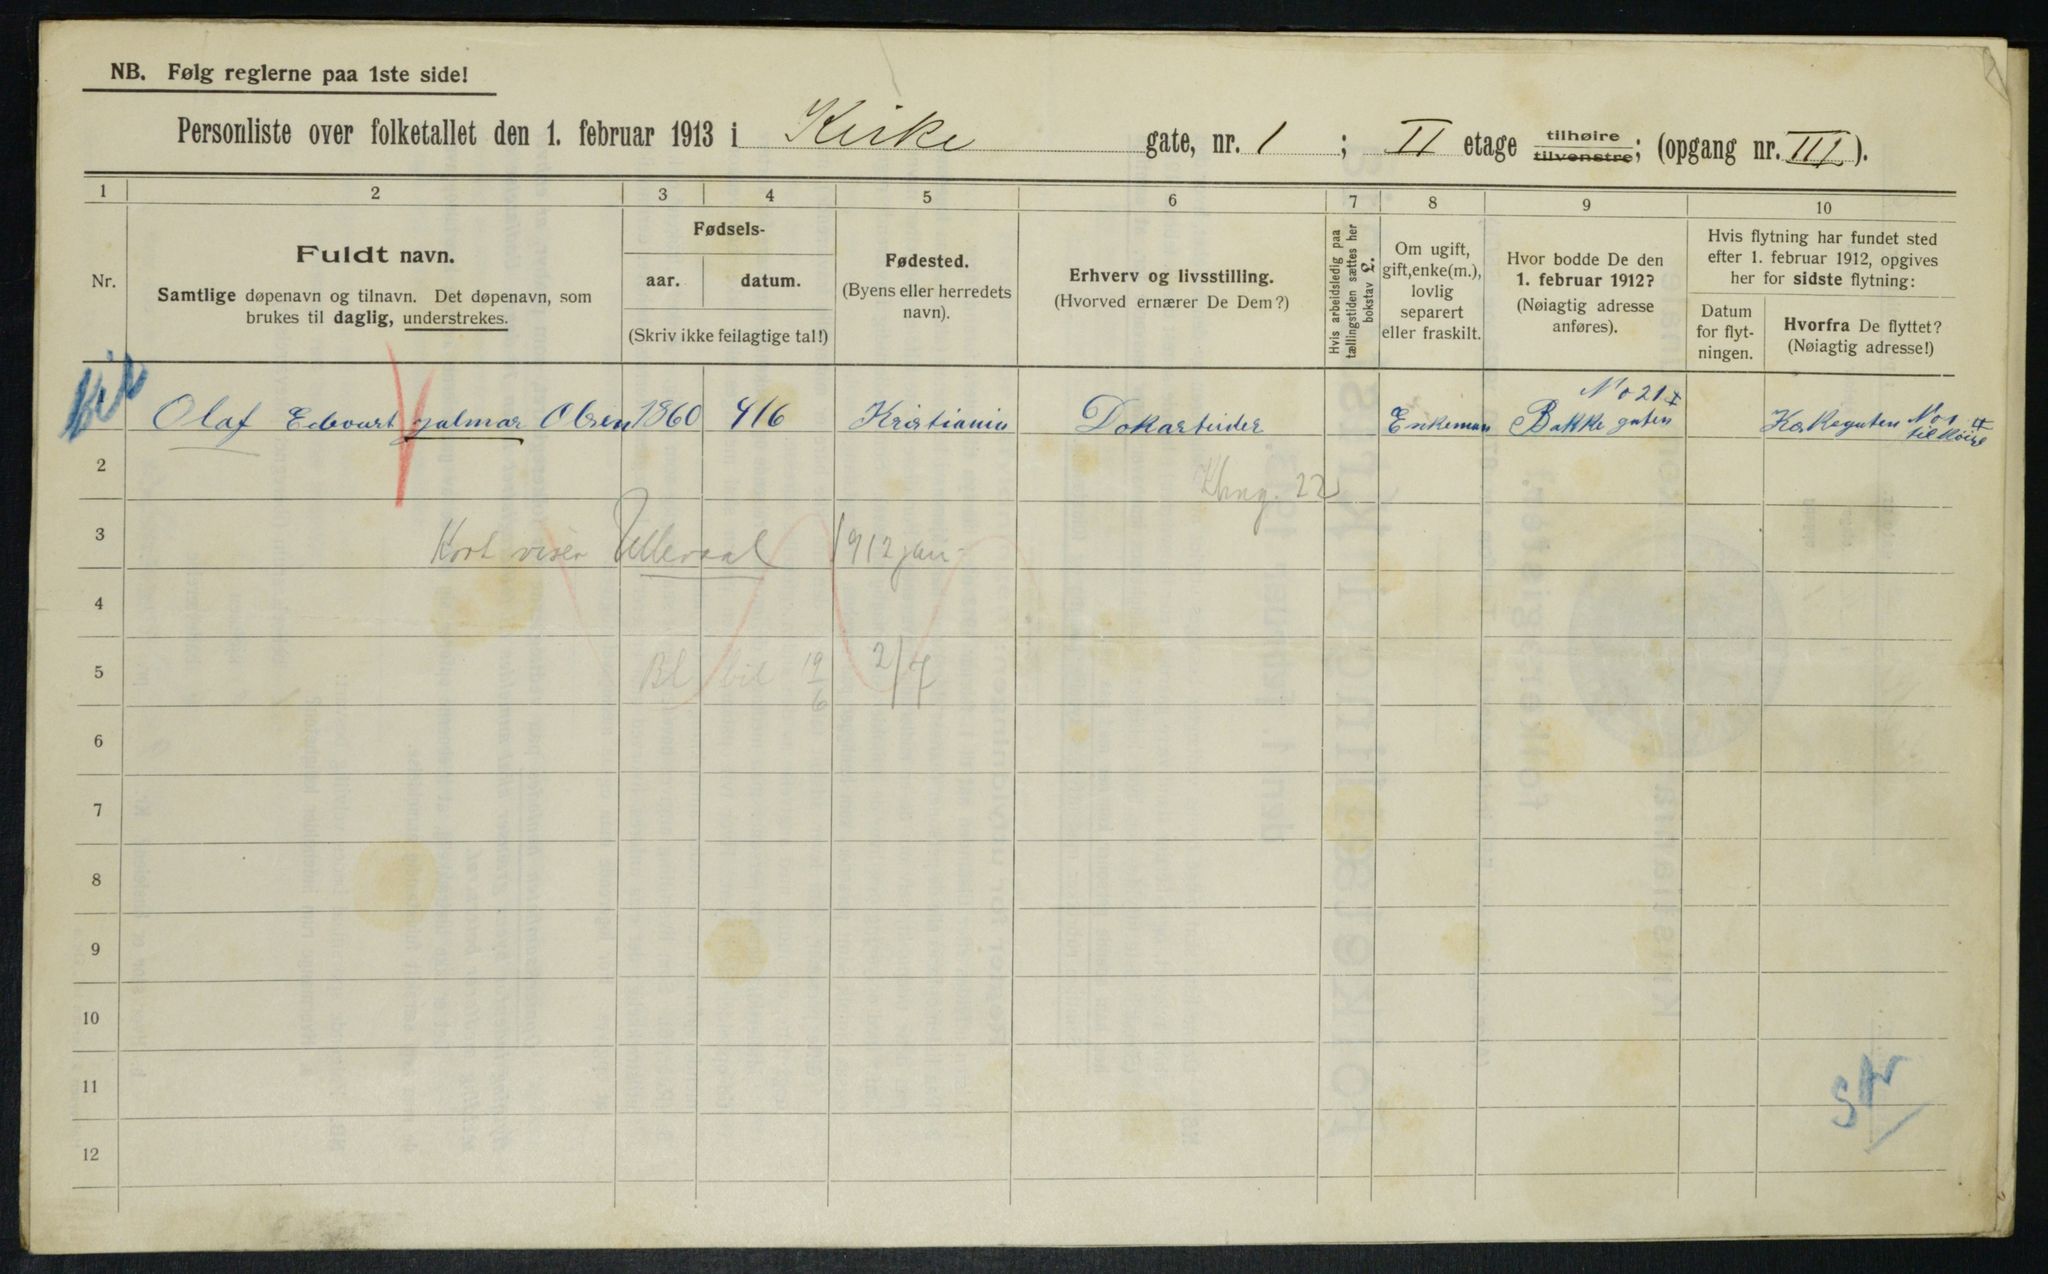 NB. Følg reglerne paa 1ste side!
Personliste over folketallet den 1. februar 1913 i Kirke gate, nr. 1 ; II etage tilhøire tilvenstre; (opgang nr. III ).
1 2 3 4 5 6 7 8 9 10
Nr.
Fuldt navn.
Samtlige døpenavn og tilnavn. Det døpenavn, som
brukes til daglig, understrekes.
Fødsels-
aar. datum.
(Skriv ikke feilagtige tal!)
Fødested.
(Byens eller herredets
navn).
Erhverv og livsstilling.
(Hvorved ernærer De Dem?)
Hvis arbeidsledig paa
tællingstiden sættes her
bokstav £.
Om ugift,
gift, enke(m.),
lovlig
separert
eller fraskilt.
Hvor bodde De den
1. februar 1912?
(Nøiagtig adresse
anføres).
Hvis flytning har fundet sted
efter 1. februar 1912, opgives
her for sidste flytning:
Datum
for flyt-
ningen.
Hvorfra De flyttet?
(Nøiagtig adresse!)
Olaf Edvart Hjalmar Olsen 1860 4/6 Kristiania Dokarbeider Enkeman Bakke gaten No 21 Kirkegaten No 1 II tilhøire
2
Khng. 22
3 Kort viser Ullevaal 1912 jan
4
5 Bl bil 19/6 2/7
6
7
8
9
10
11
12